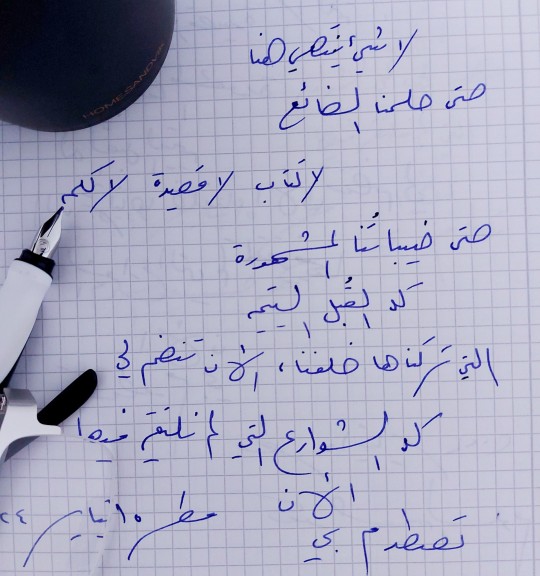 HOMESANDV
لا شيء ينتهي هنا
حتى حلمنا الضائع
لا كتاب لا قصيدة لا كلم
حتى خيباتُنا المشهورة
كل القُبل اليتيمه
التي تركناها خلفنا، الآن تنضم لي
كل الشوارع التي لم نلتقِ فيها
الآن
تصطدم بي
مطر ١٠ أيار ٢٤